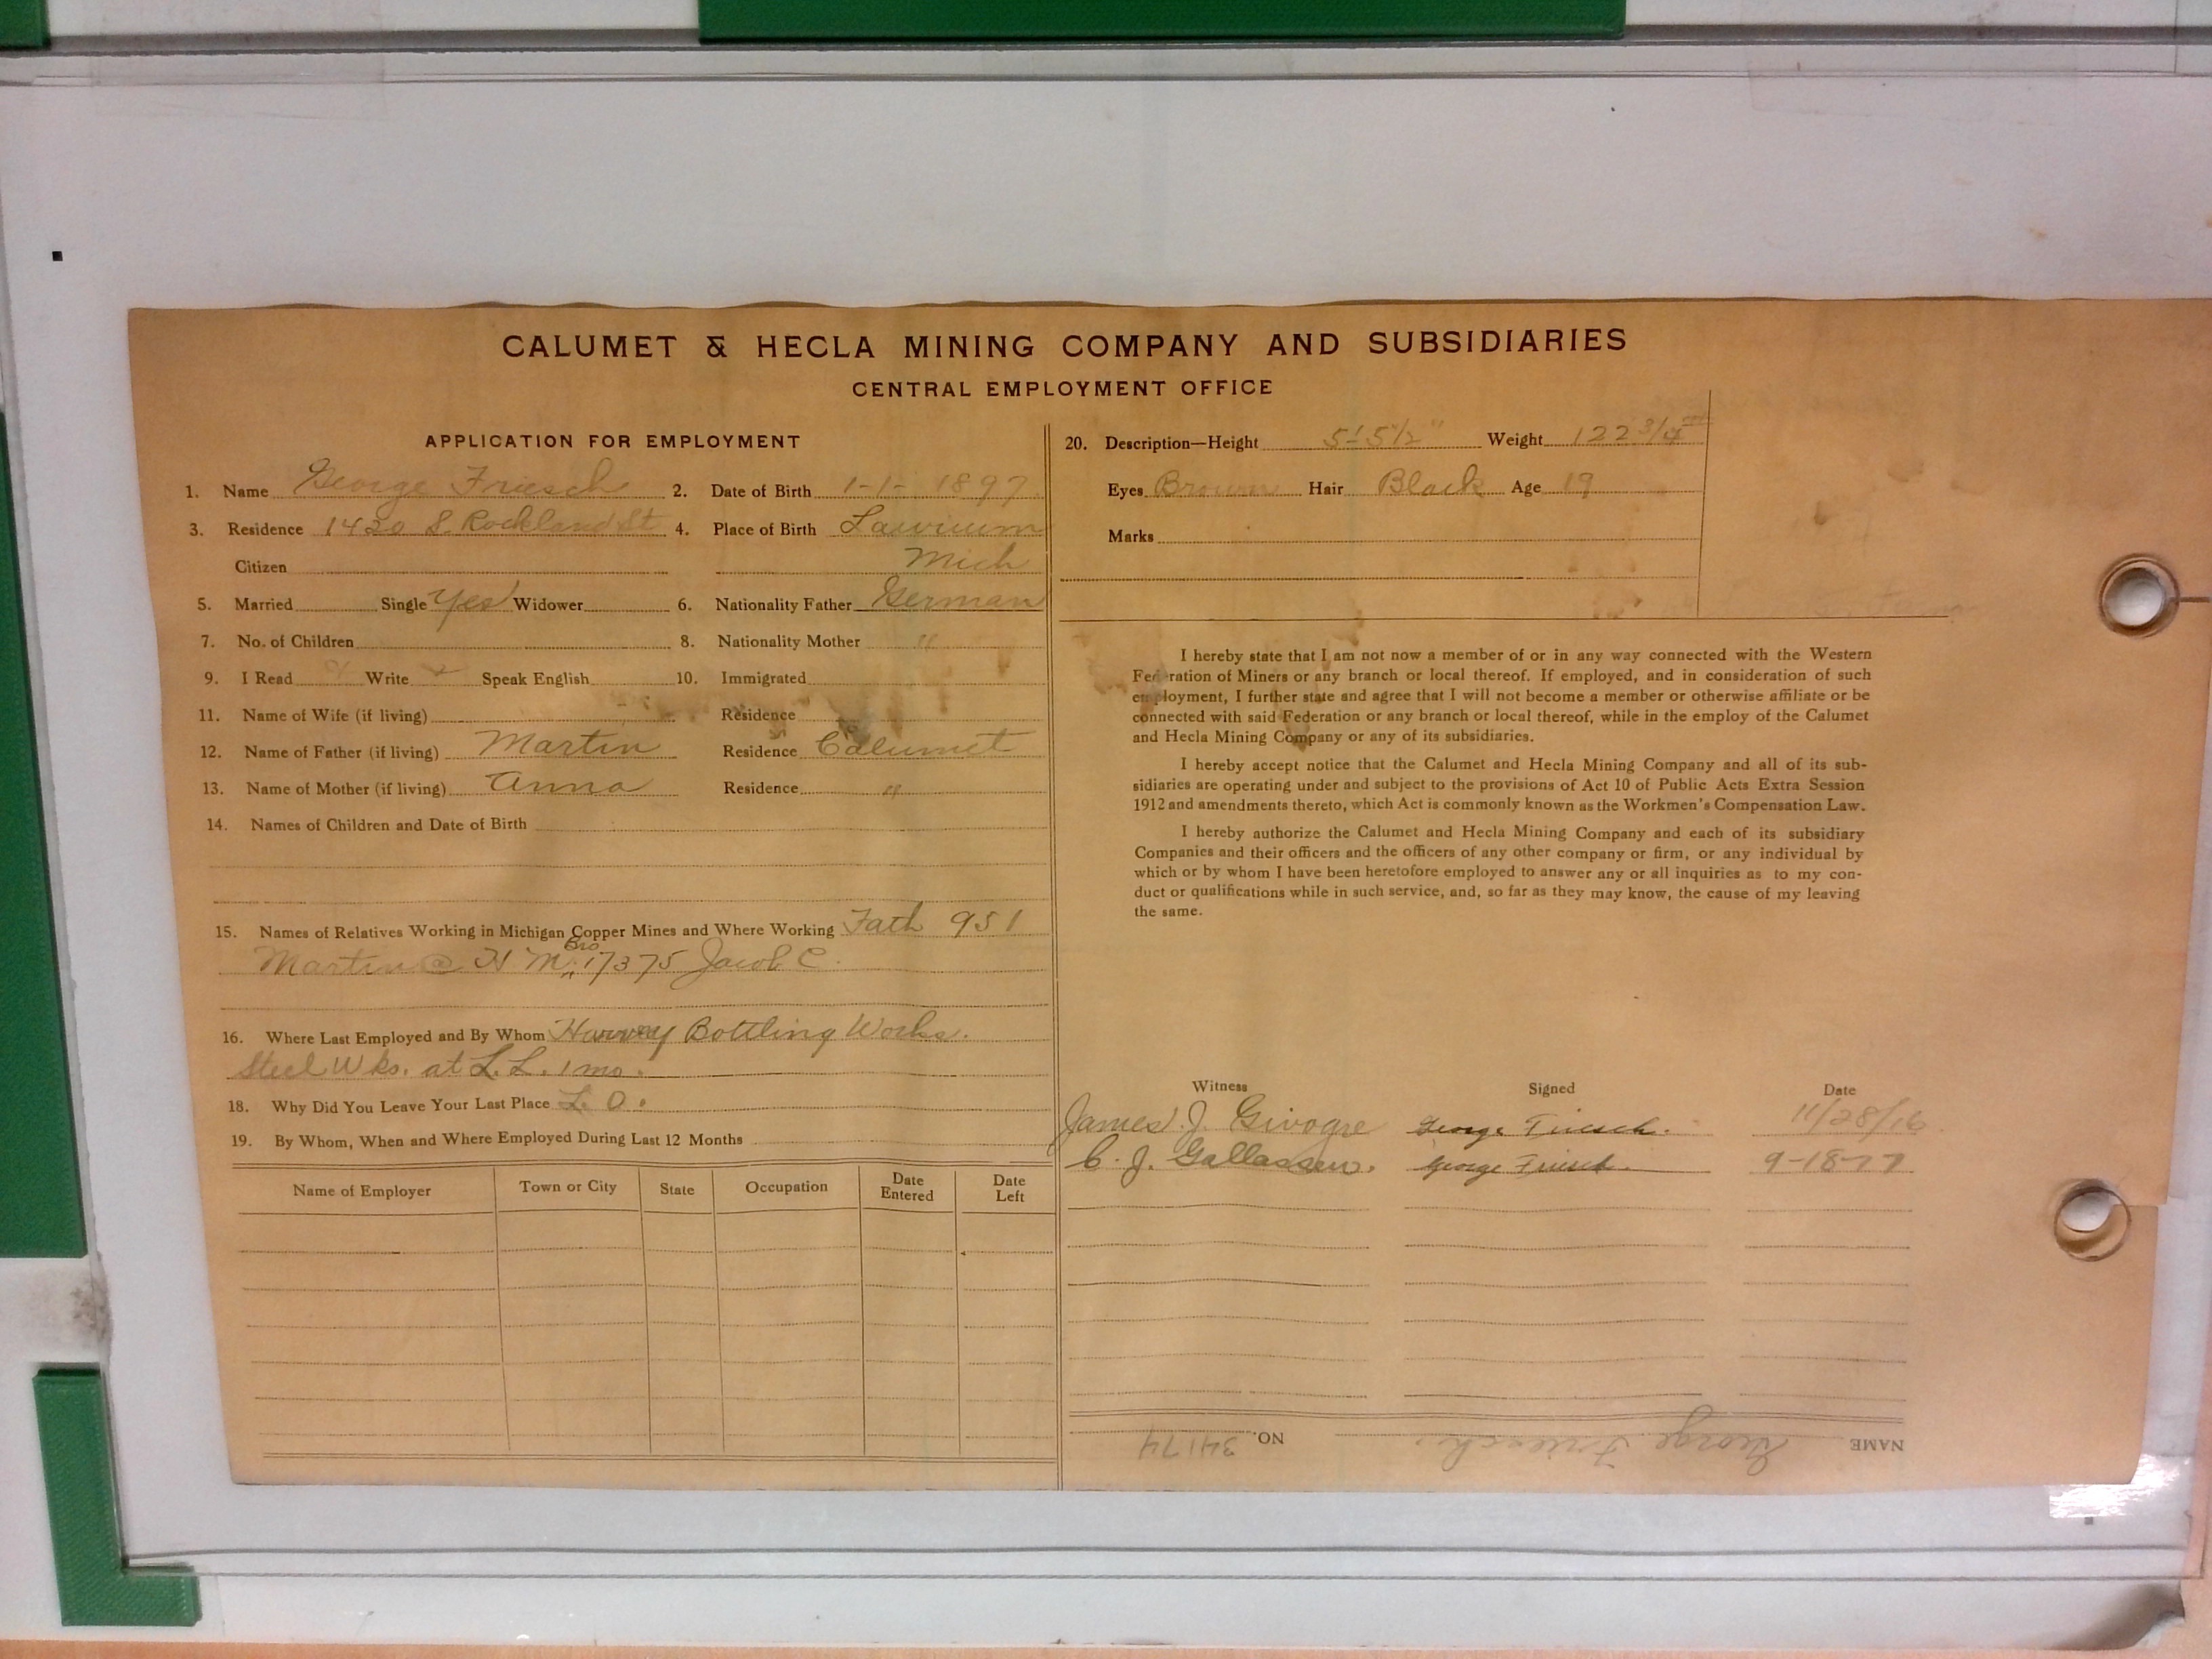 CALUMET & HECLA MINING COMPANY AND SUBSIDIARIES
CENTRAL EMPLOYMENT OFFICE
APPLICATION FOR EMPLOYMENT
1. Name George Friesch 2. Date of Birth 1-1-1897
3. Residence 1420 S. Rockland St 4. Place of Birth Laurium
Citizen Mich
5. Married Single Yes Widower 6. Nationality Father German
7. No. of Children 8. Nationality Mother "
9. I Read Write Speak English 10. Immigrated
11. Name of Wife (if living) Residence
12. Name of Father (if living) Martin Residence Calumet
13. Name of Mother (if living) Anna Residence "
14. Names of Children and Date of Birth
15. Names of Relatives Working in Michigan Copper Mines and Where Working Fath 951
Bro
Martin @ H M. 17375 Jacob C
16. Where Last Employed and By Whom Harvey Bottling Works.
Steel Wks. at L. L. 1 mo.
18. Why Did You Leave Your Last Place L. O.
19. By Whom, When and Where Employed During Last 12 Months
Name of Employer Town or City State Occupation Date Entered Date Left
20. Description—Height 5' 5 1/2" Weight 122 3/4
Eyes Brown Hair Black Age 19
Marks
I hereby state that I am not now a member of or in any way connected with the Western
Federation of Miners or any branch or local thereof. If employed, and in consideration of such
employment, I further state and agree that I will not become a member or otherwise affiliate or be
connected with said Federation or any branch or local thereof, while in the employ of the Calumet
and Hecla Mining Company or any of its subsidiaries.
I hereby accept notice that the Calumet and Hecla Mining Company and all of its sub-
sidiaries are operating under and subject to the provisions of Act 10 of Public Acts Extra Session
1912 and amendments thereto, which Act is commonly known as the Workmen's Compensation Law.
I hereby authorize the Calumet and Hecla Mining Company and each of its subsidiary
Companies and their officers and the officers of any other company or firm, or any individual by
which or by whom I have been heretofore employed to answer any or all inquiries as to my con-
duct or qualifications while in such service, and, so far as they may know, the cause of my leaving
the same.
Witness Signed Date
James J. Givogre George Friesch. 11/28/16
C. J. Gallassen. George Friesch. 9-18-17
NAME George Friesch. NO. 34174